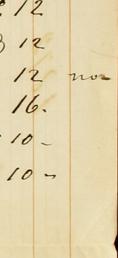 12
12
12 nov
16.
10 -
10 -